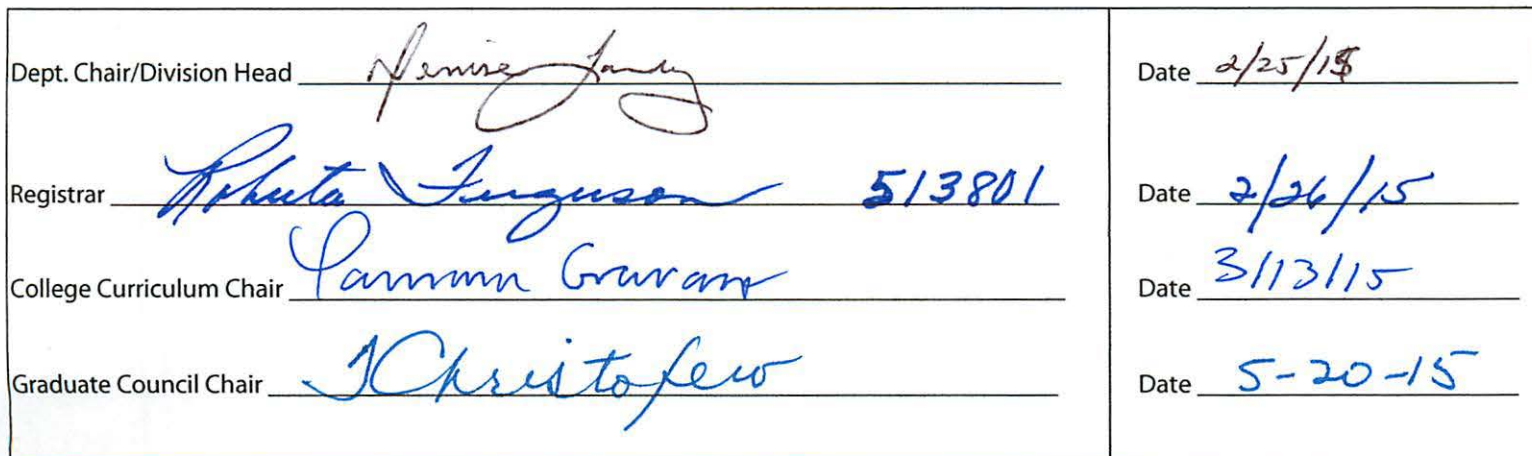 Dept. Chair/Division Head Denise Date 2/25/15
Registrar Roberta Ferguson 513801 Date 2/26/15
College Curriculum Chair Date 3/13/15
Graduate Council Chair Date 5-20-15